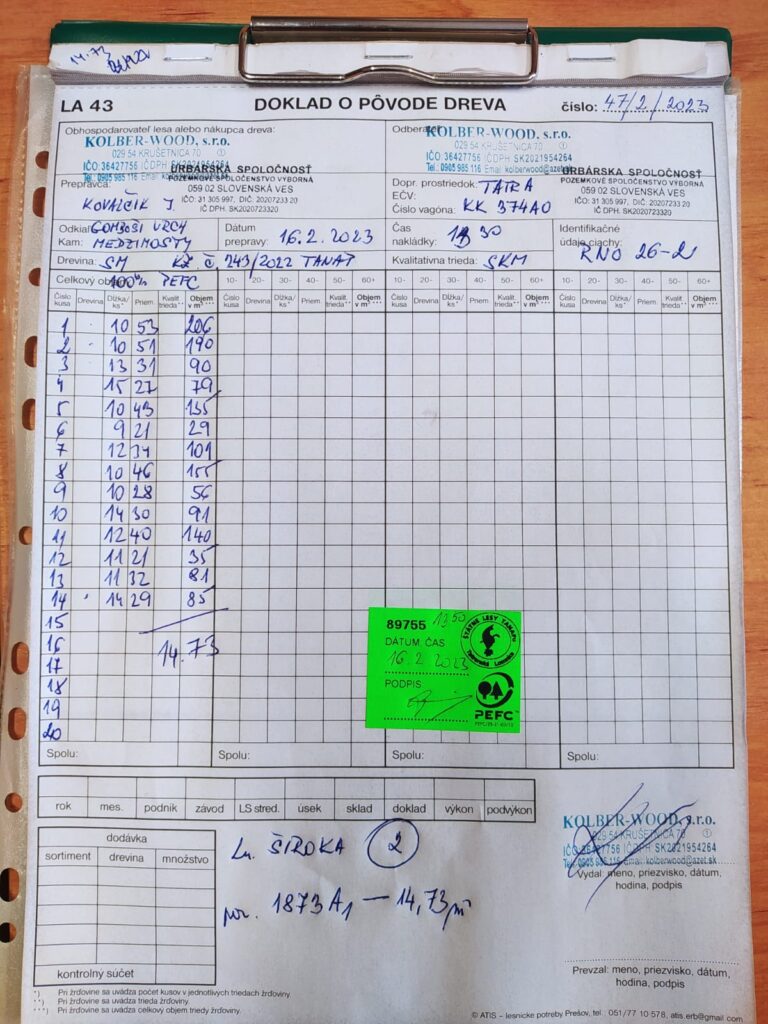 14.73
LA 43 DOKLAD O PÔVODE DREVA číslo: 47/2/2023
Obhospodarovateľ lesa alebo nákupca dreva:
KOLBER-WOOD, s.r.o.
029 54 KRUŠETNICA 70 ①
IČO: 36427756 IČDPH SK2021954264
Tel.: 0905 985 116 Email:
URBÁRSKA SPOLOČNOSŤ
POZEMKOVÉ SPOLOČENSTVO VÝBORNÁ
059 02 SLOVENSKÁ VES
IČO: 31 305 997, DIČ: 20207233 20
IČ DPH: SK2020723320
Odberateľ
KOLBER-WOOD, s.r.o.
029 54 KRUŠETNICA 70 ①
IČO: 36427756 IČDPH SK2021954264
Tel.: 0905 985 116 Email: kolberwood@azet.sk
URBÁRSKA SPOLOČNOSŤ
POZEMKOVÉ SPOLOČENSTVO VÝBORNÁ
059 02 SLOVENSKÁ VES
IČO: 31 305 997, DIČ: 20207233 20
IČ DPH: SK2020723320
Prepravca:
KOVALČIK J
Dopr. prostriedok: TATRA
EČV:
Číslo vagóna: KK 374AO
Odkiaľ GOMBOŠI VRCH
Kam: MEDZIMOSTY
Dátum prepravy: 16.2.2023
Čas nakládky: 30
Identifikačné údaje ciachy: RNO 26-2
Drevina: SM KZ. č. 243/2022 TANAP
Kvalitatívna trieda: SKM
Celkový objem 100% PEFC
10- 20- 30- 40- 50- 60+
10- 20- 30- 40- 50- 60+
10- 20- 30- 40- 50- 60+
Číslo kusa Drevina Dĺžka/ks* Priem. Kvalit. trieda** Objem v m³***
Číslo kusa Drevina Dĺžka/ks* Priem. Kvalit. trieda** Objem v m³***
Číslo kusa Drevina Dĺžka/ks* Priem. Kvalit. trieda** Objem v m³***
Číslo kusa Drevina Dĺžka/ks* Priem. Kvalit. trieda** Objem v m³***
1 10 53 206
2 10 51 190
3 13 31 90
4 15 27 79
5 10 43 135
6 9 21 29
7 12 34 101
8 10 46 155
9 10 28 56
10 14 30 91
11 12 40 140
12 11 21 35
13 11 32 81
14 14 29 85
15
16 14.73
17
18
19
20
89755 13.50
DÁTUM ČAS
16.2 2023
PODPIS
ŠTÁTNE LESY TANAPU
Tatranská Lomnica
PEFC
Spolu: Spolu: Spolu: Spolu:
rok mes. podnik závod LS stred. úsek sklad doklad výkon podvýkon
dodávka
sortiment drevina množstvo
kontrolný súčet
Ln. ŠIROKA 2
por. 1873 A1 — 14,73 m³
KOLBER-WOOD, s.r.o.
029 54 KRUŠETNICA 70 ①
IČO: 36427756 IČDPH SK2021954264
Tel.: 0905 985 116 Email: kolberwood@azet.sk
Vydal: meno, priezvisko, dátum,
hodina, podpis
Prevzal: meno, priezvisko, dátum,
hodina, podpis
*) Pri žrďovine sa uvádza počet kusov v jednotlivých triedach žrďoviny.
**) Pri žrďovine sa uvádza trieda žrďoviny.
***) Pri žrďovine sa uvádza celkový objem triedy žrďoviny.
© ATIS – lesnícke potreby Prešov, tel.: 051/77 10 578, atis.erb@gmail.com